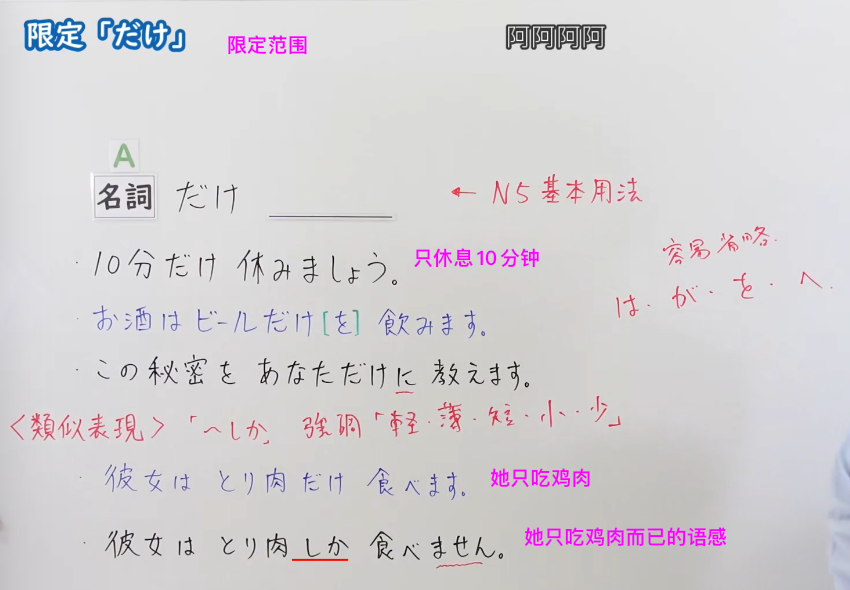 限定「だけ」 限定范围 阿阿阿阿
A
名詞 だけ ← N5 基本用法
容易省略.
・10分だけ 休みましょう。 只休息10分钟
は・が・を・へ.
・お酒は ビールだけ[を] 飲みます。
・この秘密を あなただけに 教えます。
<類似表現> 「〜しか」 強調「軽・薄・短・小・少」
・彼女は とり肉だけ 食べます。 她只吃鸡肉
・彼女は とり肉しか 食べません。 她只吃鸡肉而已的语感